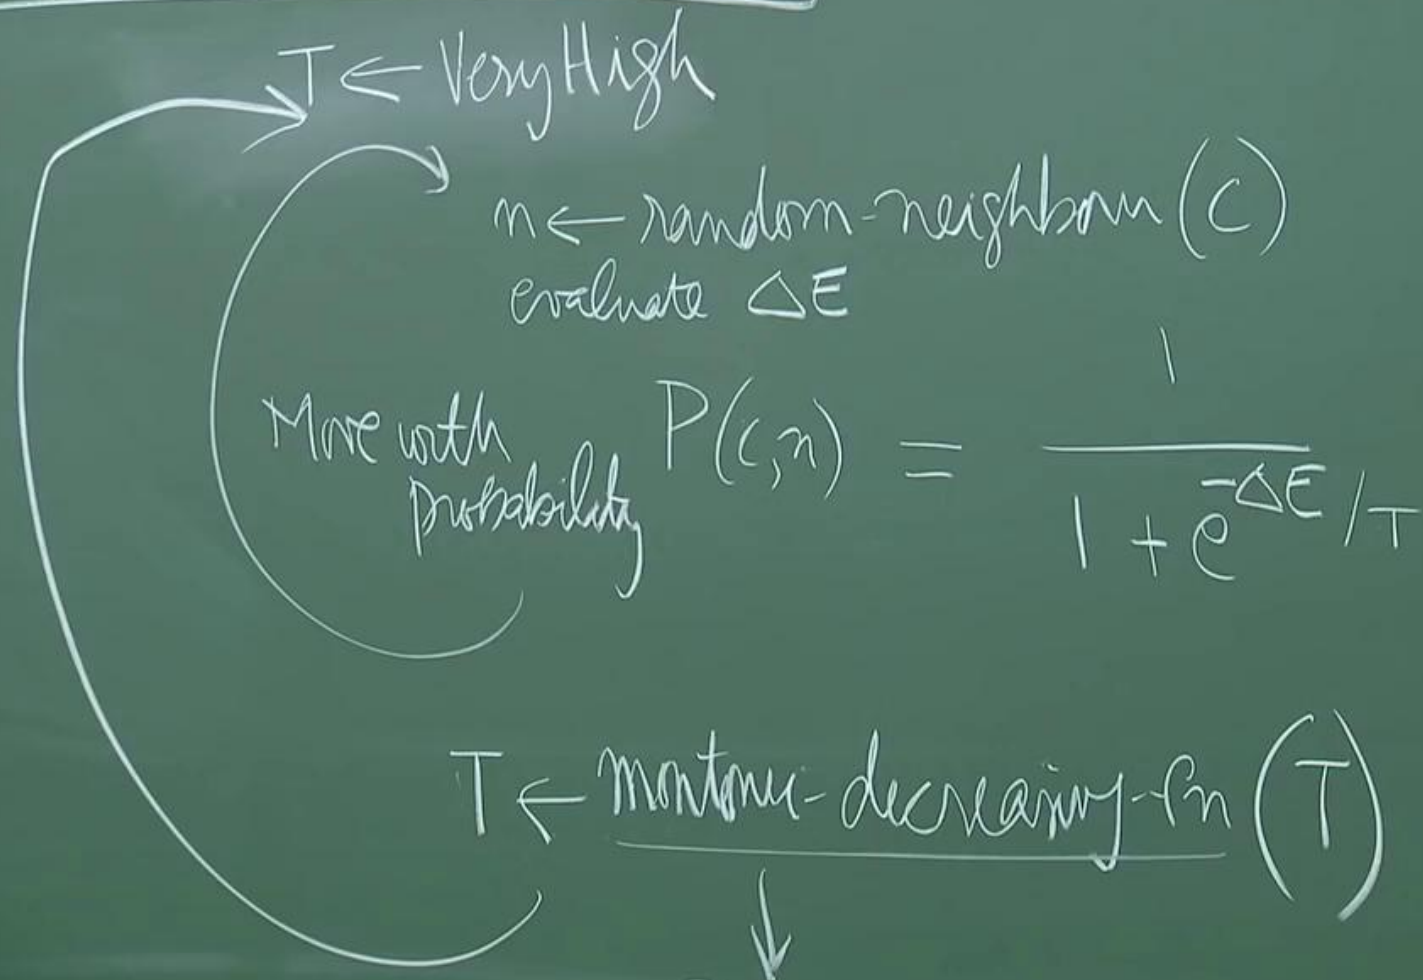 T ← Very High
n ← random-neighbour (c)
evaluate ΔE
Move with probability P(c,n) = 1 / (1 + e^{-ΔE/T})
T ← montonic-decreasing-fn (T)